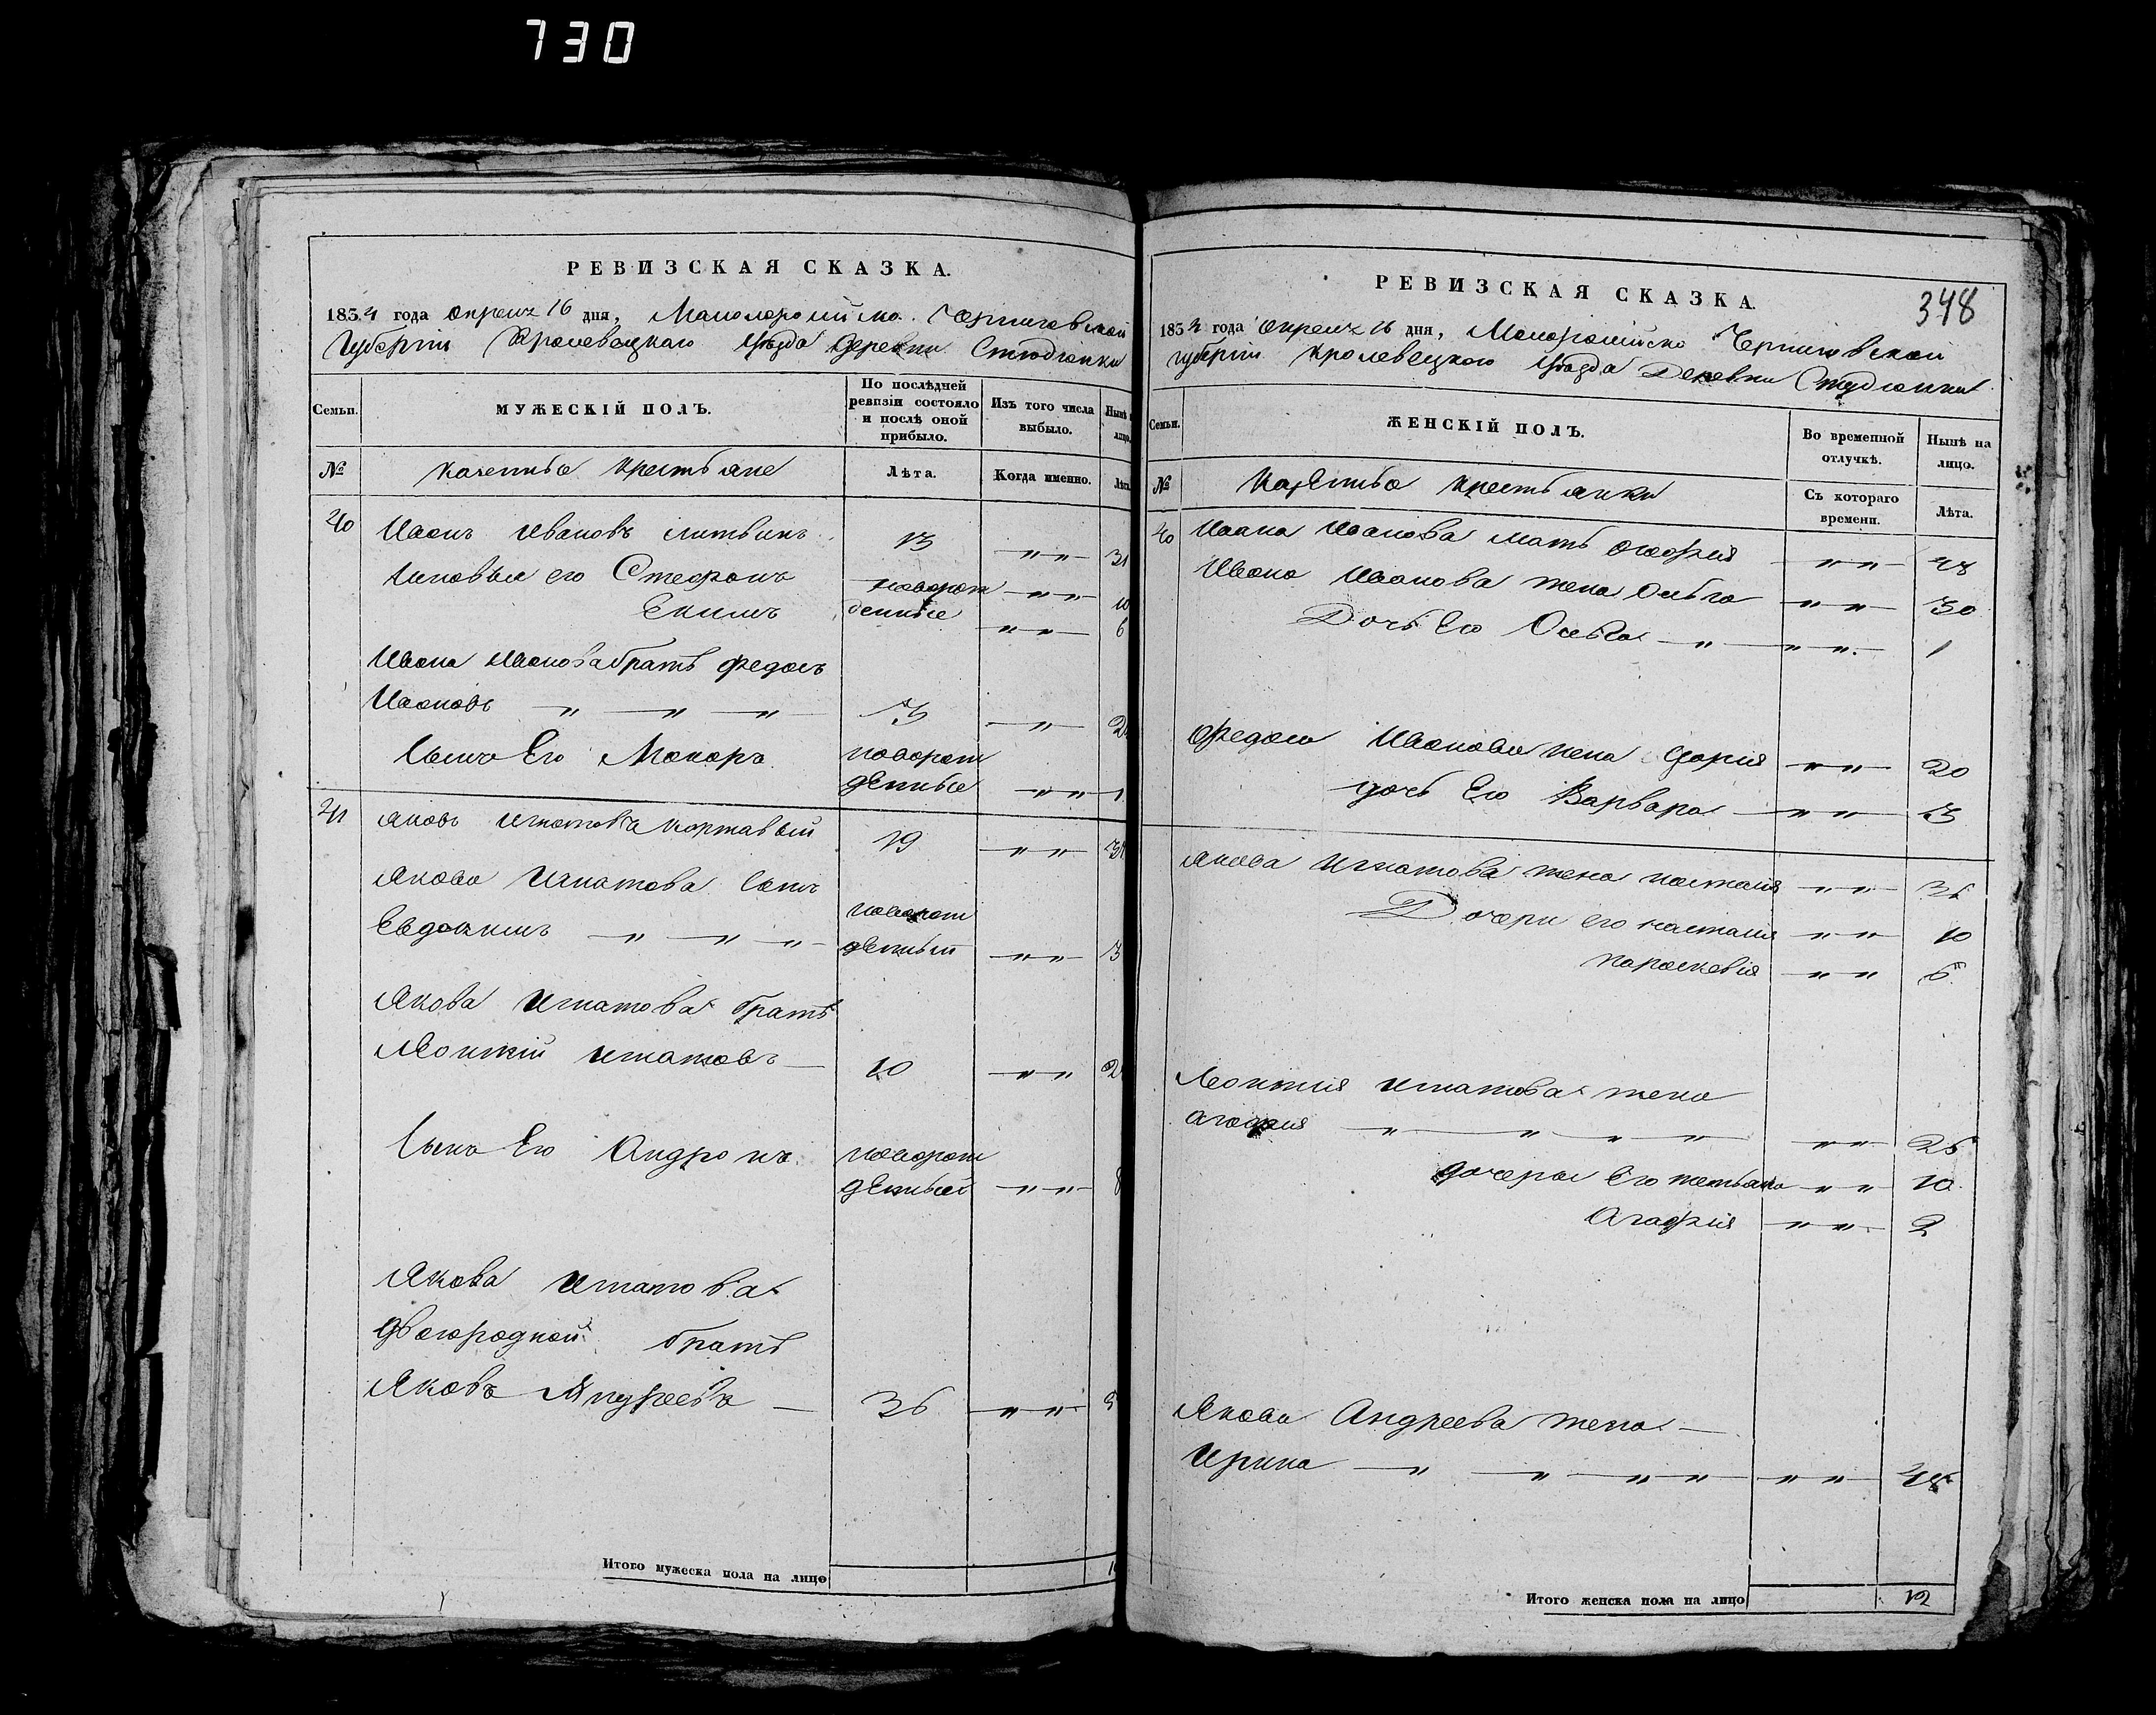 730
РЕВИЗСКАЯ СКАЗКА.
1834 года Апреля 16 дня, Малоросийско Черниговской
Губерніи Кролевецкаго Уѣзда Деревни Студіонки
Семьи.
МУЖЕСКІЙ ПОЛЪ.
По послѣдней ревизіи состояло и послѣ оной прибыло.
Изъ того числа выбыло.
Нынѣ
лицо.
№
Казенные Крестьяне
Лѣта.
Когда именно.
Лѣта
40 Иванъ Ивановъ Литвинъ 13 〃〃 31
Сыновья его Стефанъ новорож 〃〃 10
Екимъ денные 〃〃 6
Ивана Иванова братъ Федоръ
Ивановъ 〃 〃 〃 〃 2
Сынъ Его Макаръ новорож
денные 〃〃 1
41 Яковъ Игнатовъ Картавый 19 〃〃
Якова Игнатова Сынъ
Евдокимъ 〃 〃 〃 новорож
денный 〃〃 3
Якова Игнатова братъ
Леонтій Игнатовъ 10 〃〃 2
Сынъ Его Андронъ новорож
денный 〃〃 8
Якова Игнатова
Двоюродной братъ
Яковъ Андреевъ 36 〃〃 5
Итого мужеска пола на лицо 1
РЕВИЗСКАЯ СКАЗКА.
348
1834 года Апреля 16 дня, Малоросійско Черниговской
Губерніи Кролевецкого Уѣзда Деревни Студіонки
Семьи.
ЖЕНСКІЙ ПОЛЪ.
Во временной отлучкѣ.
Нынѣ на лицо.
№
Казенные Крестьянки
Съ котораго времени.
Лѣта.
40 Ивана Иванова мать Агафия 〃〃 48
Ивана Иванова жена Ольга 〃〃 30
Дочь Его Ольга 〃 〃〃 1
Федора Иванова жена Дария 〃〃 20
дочь Его Варвара 〃〃 3
Якова Игнатова жена Настасия 〃〃
Дочери его Настасия 〃〃 10
Параскевия 〃〃
Леонтия Игнатова жена
Агафия 〃 〃 〃 〃 〃〃 25
дочери Его Татьяна 〃〃 10
Агафия 〃〃 2
Якова Андреева жена
Ирина 〃 〃 〃〃 〃〃 45
Итого женска пола на лицо 12